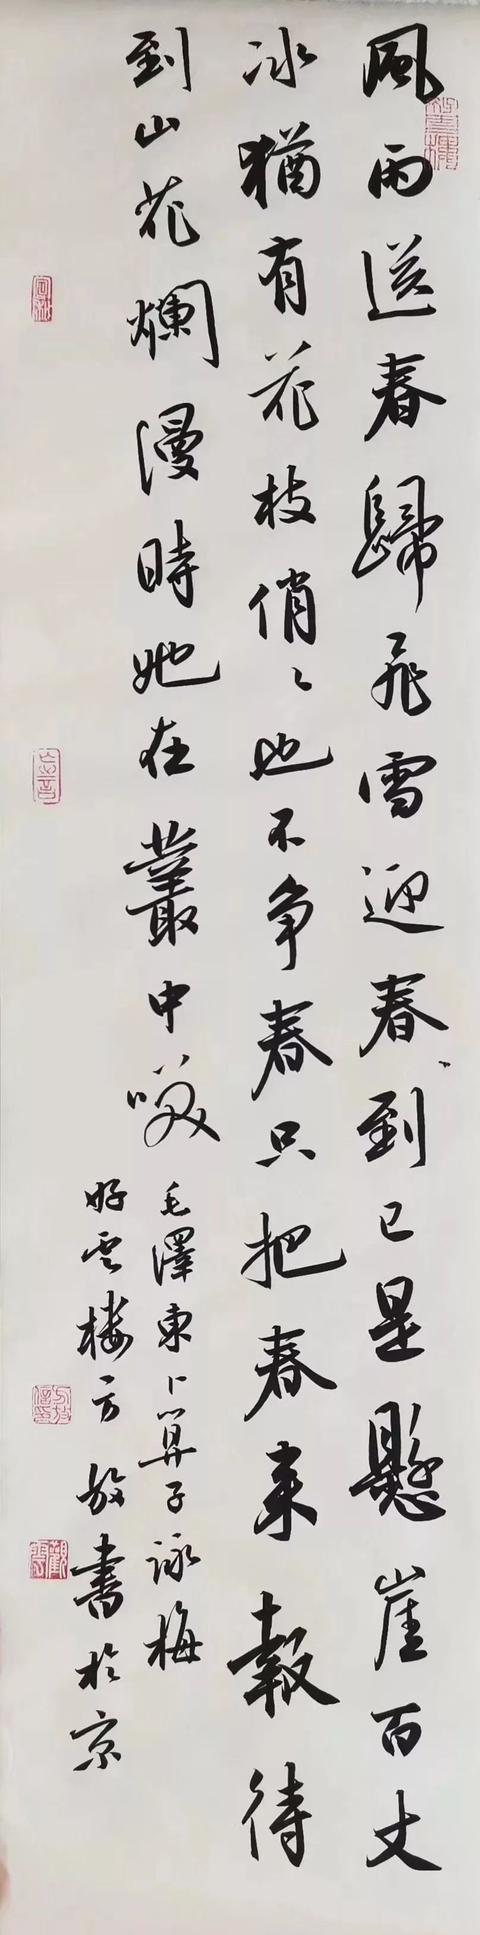 風雨送春歸飛雪迎春到已是懸崖百丈
冰猶有花枝俏〻也不争春只把春来報待
到山花爛漫時她在叢中咲
毛澤東卜算子詠梅
好雲楼方放書於京